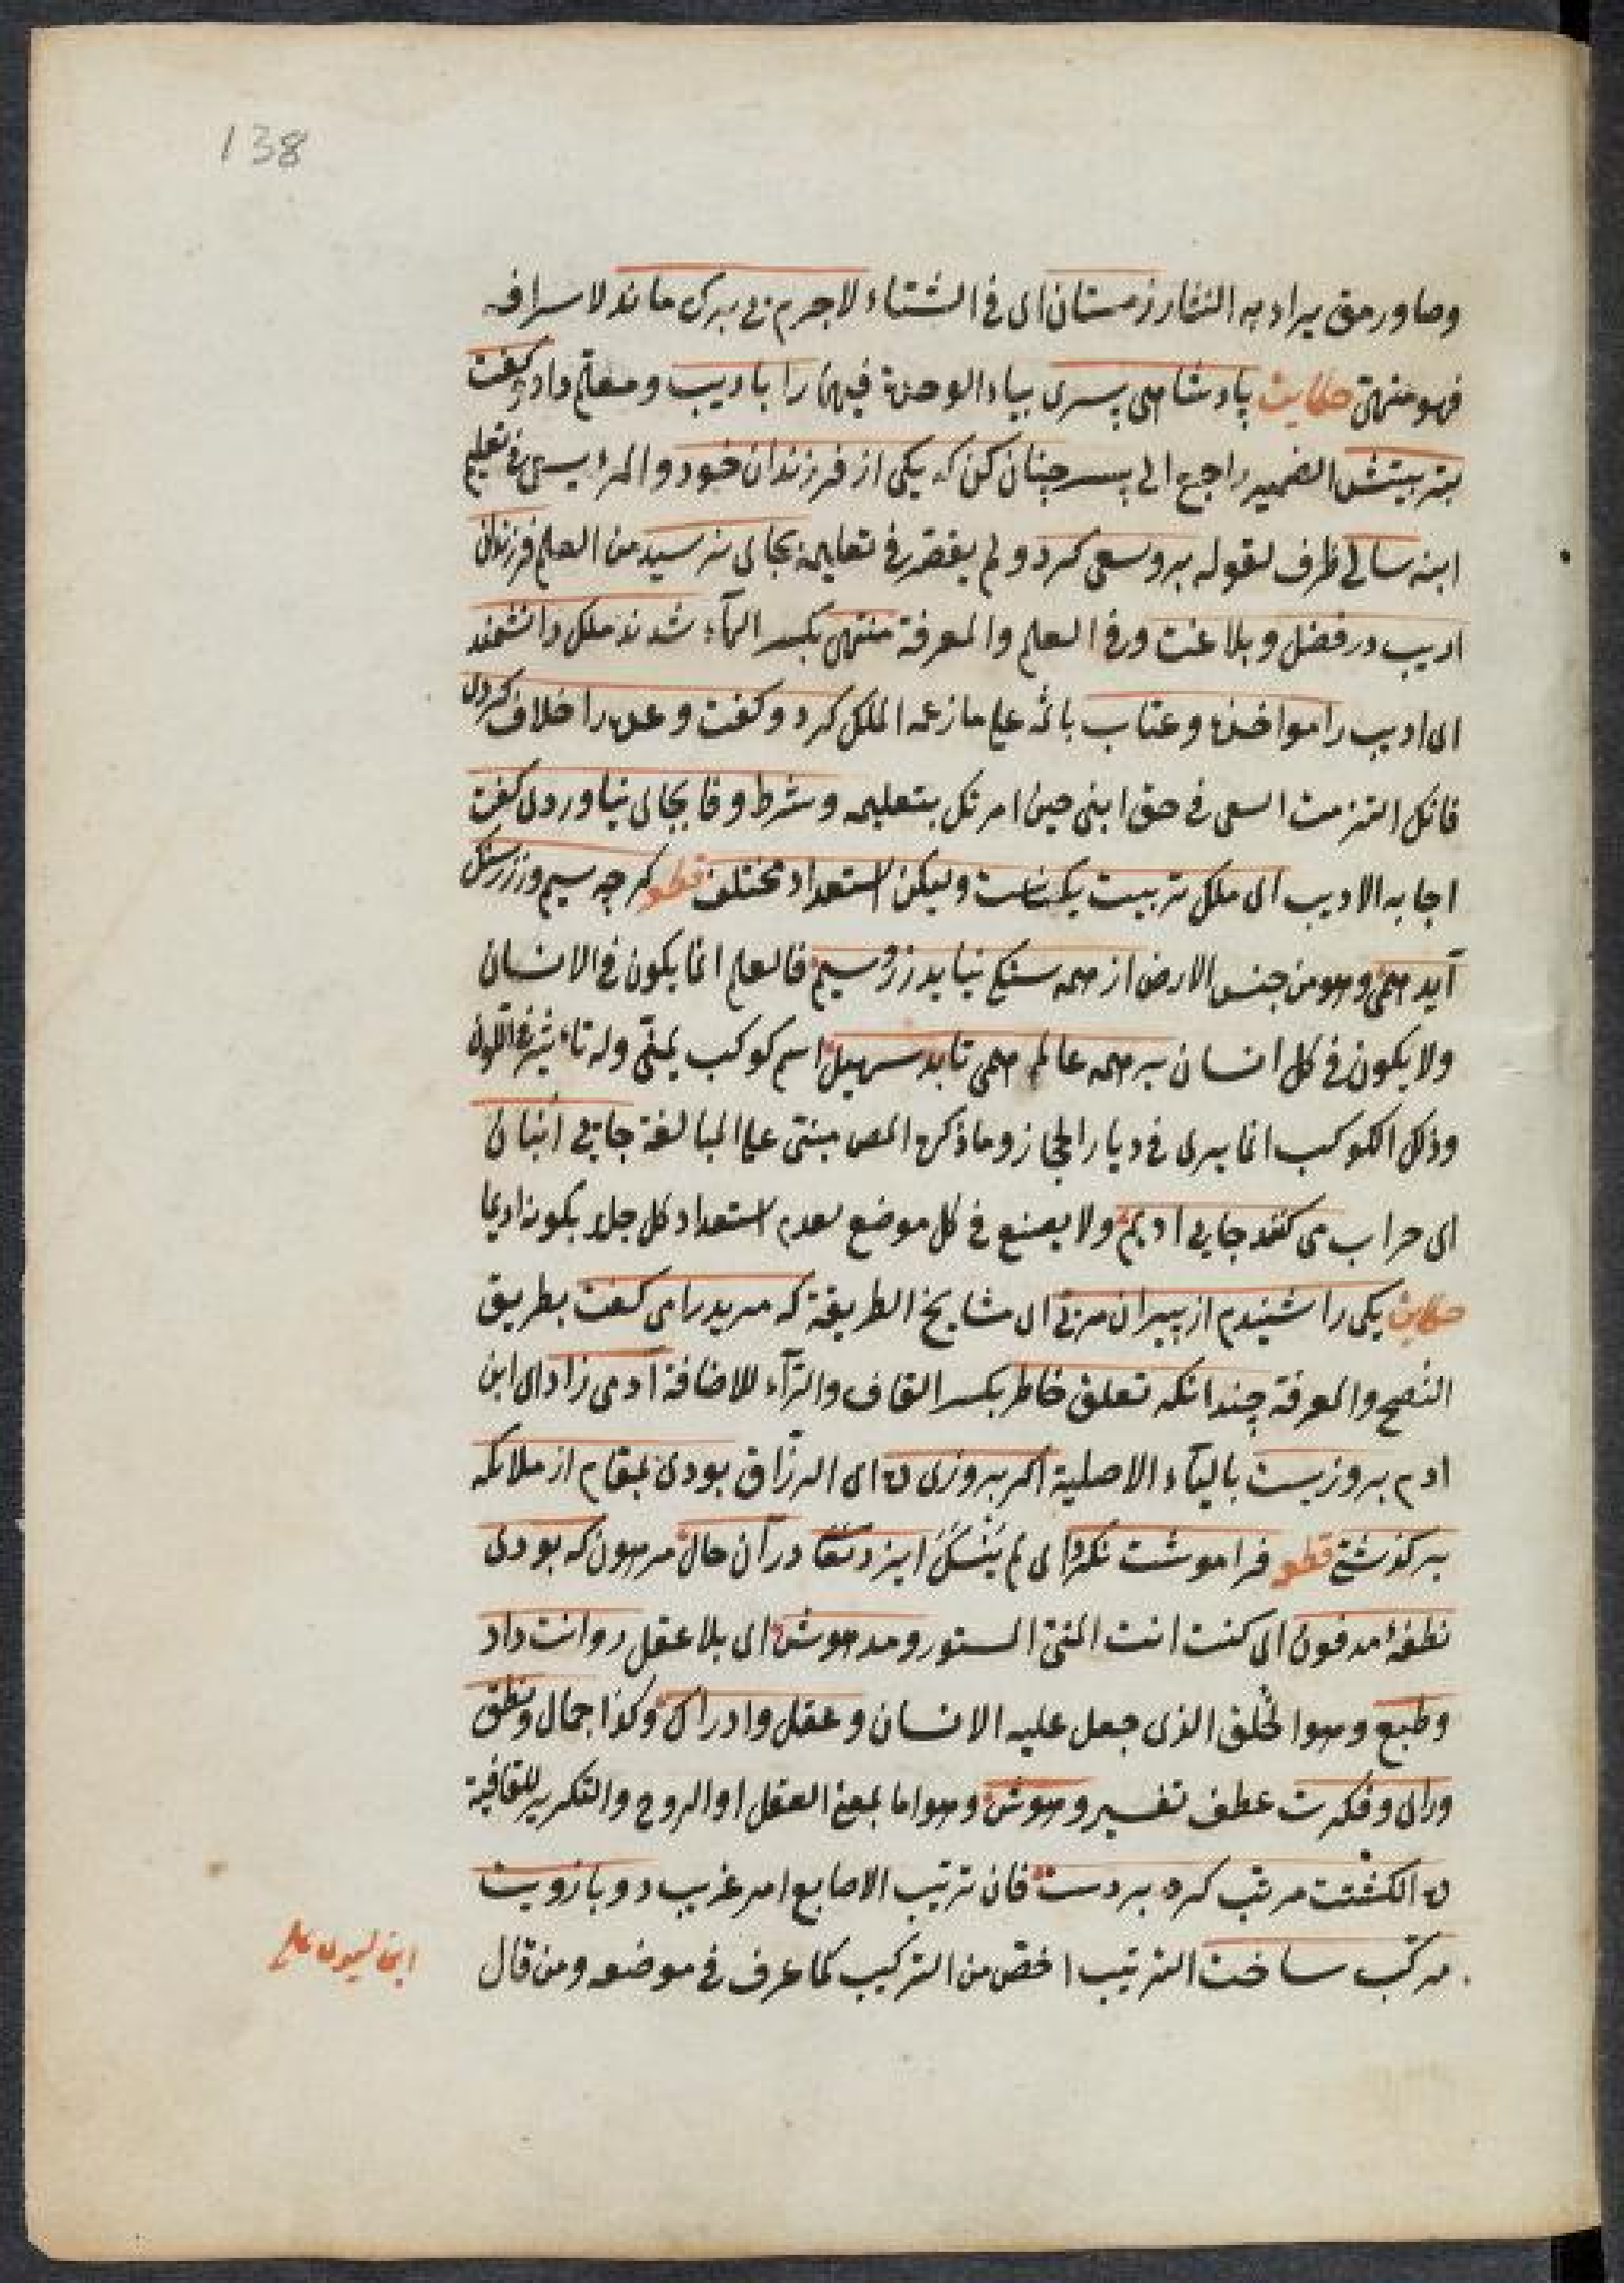 138
وصاورمق يراد به النثار زمستان ای فی الشتاء لاجرم بی برک ماند لاسرافه
فهو منتهی حکایت پادشاهی پسری بیاء الوحدة فیهما را بادیب ومعلم داد وکفت
بتربیتش الضمیر راجع الی پسر چنان کن که یکی از فرزندان خود را والمراد یسعی فی تعلیم
ابنه سالی ظرف لقوله برو سعی کرد ولم یقصّر فی تعلیمه بجایی نرسید من العلم فرزندان
ادیب در فضل وبلاغت وفی العلم والمعرفة منتهی بکسر الهآء شدند ملک دانشمند
ای ادیب را مواخذه وعتاب بانّه علی ما زعمه الملک کرد وکفت وعده را خلاف کردی
فانک التزمت السعی فی حق ابنی حین امرتک بتعلیمه وشرط وفا بجای نیاوردی کفت
اجابه الادیب ای ملک تربیت یکسانست ولیکن استعداد مختلف قطعه کرچه سیم وزر زسنک
آید همی وهو من جنس الارض از همه سنکی نیاید زر وسیم فالعلم انما یکون فی الانسان
ولا یکون فی کل انسان بر همه عالم همی تابد سهیل اسم کوکب یمنّی وله تاثیر فی اللون
وذلک الکوکب انما یری فی دیار الحجاز وما ذکره المص مبنی علی المبالغة جایی انبان
ای جراب می کند جایی ادیم ولا یصنع فی کل موضع لعدم استعداد کل جلد بکونه ادیما
حکایت یکی را شنیدم از پیران مربّی ای مشایخ الطریقة که مرید را می کفت بطریق
النصح والمعرفة چندانکه تعلق خاطر بکسر القاف والرّآء للاضافة آدمی زاد ای ابن
ادم بروزیست بالیآء الاصلیة اکر بروزی ده ای الرزّاق بودی بمقام از ملائکه
برکذشتی قطعه فراموشت نکرد ای لم ینسک ایزد تعا در آن حال مرهون که بودی
نطفه مدفون ای کنت انت المنی المستور ومدهوش ای بلا عقل روانت داد
وطبع وهو الخلق الذی جعل علیه الانسان وعقل وادراک وکذا جمال ونطق
ورای وفکرت عطف تفسیر وهوش وهو اما بمعنی العقل او الروح والتکریر للقافیة
ده انکشتت مرتب کرد بر دست فان ترتیب الاصابع امر غریب دو بازویت
مرکّب ساخت الترتیب اخصّ من الترکیب کما عرف فی موضعه ومن قال